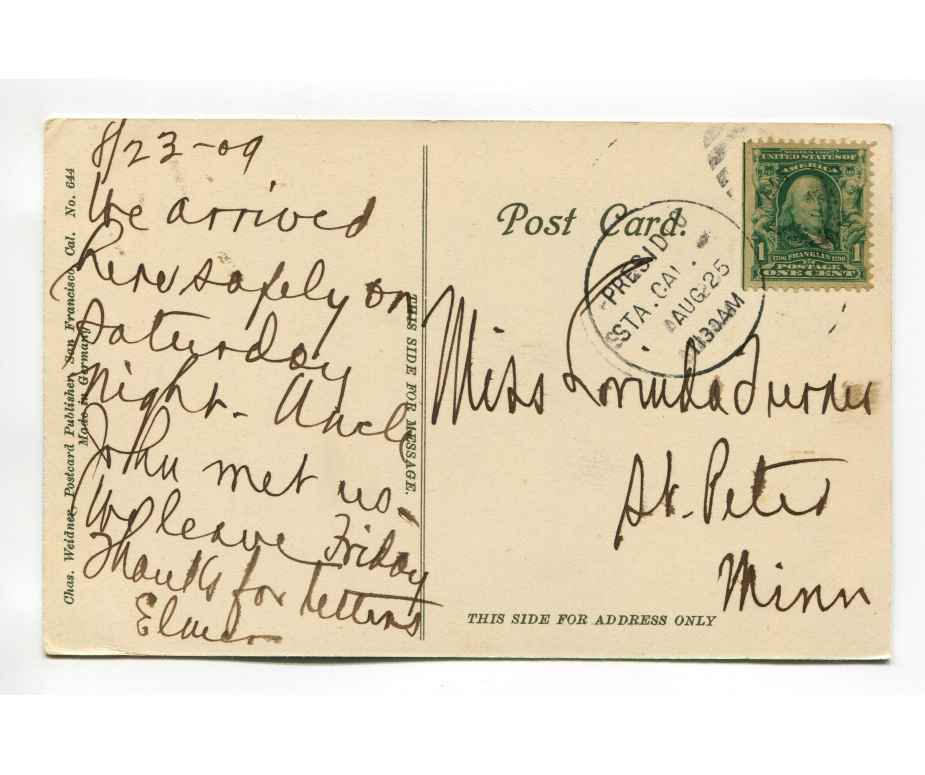 8/23-09
We arrived
here safely on
Saturday
night. Uncle
John met us.
We leave Friday
Thanks for letters
Elmer
Chas. Weidner, Postcard Publisher, San Francisco, Cal. No. 644
Made in Germany
THIS SIDE FOR MESSAGE.
Post Card.
PRESIDIO
STA. CAL.
AUG 25
30 AM
UNITED STATES OF
AMERICA
1 FRANKLIN 1
POSTAGE
ONE CENT
Miss Turner
St. Peter
Minn
THIS SIDE FOR ADDRESS ONLY